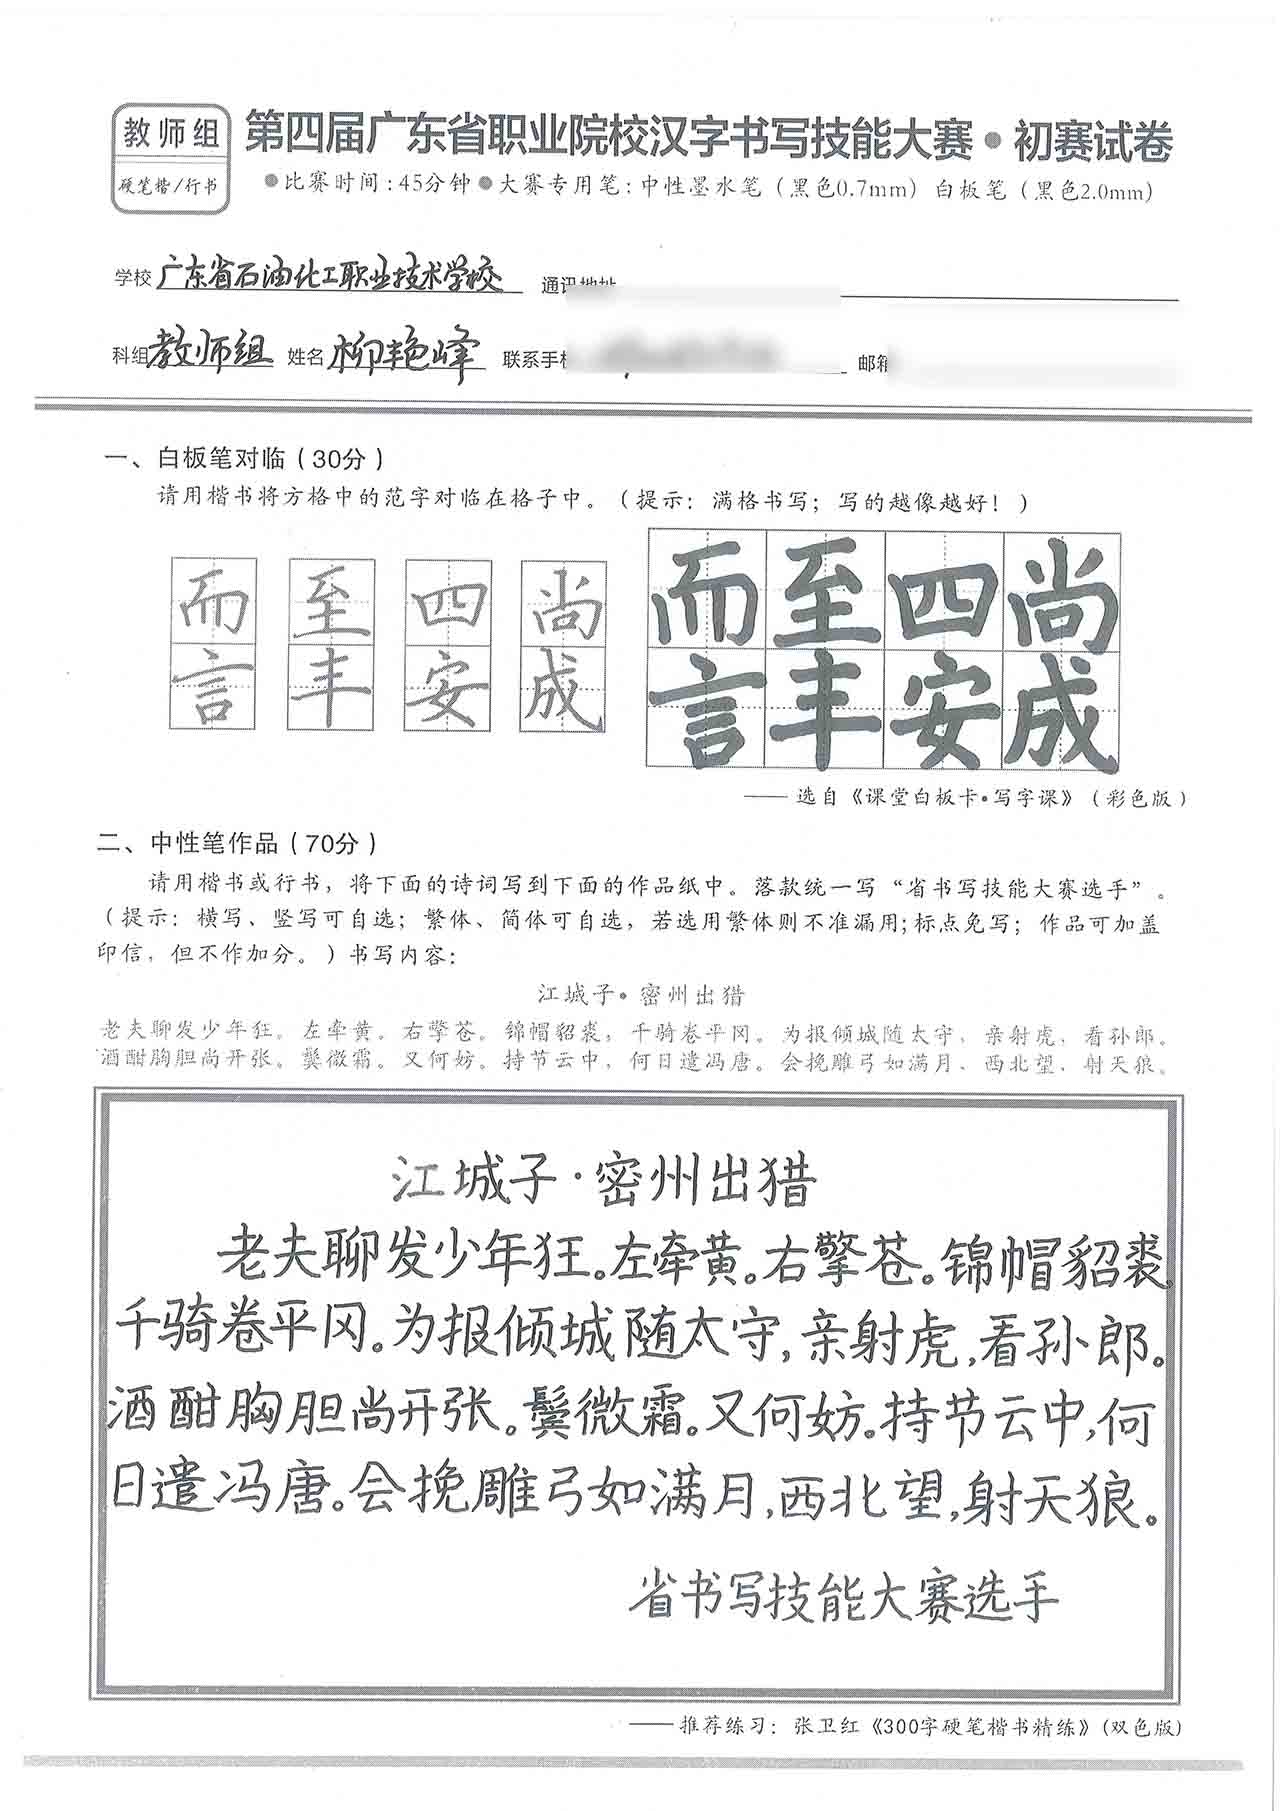 教师组
硬笔楷/行书
第四届广东省职业院校汉字书写技能大赛•初赛试卷
●比赛时间:45分钟●大赛专用笔:中性墨水笔（黑色0.7mm）白板笔（黑色2.0mm）
学校 广东省石油化工职业技术学校 通讯地址
科组 教师组 姓名 柳艳峰 联系手机 邮箱
一、白板笔对临（30分）
请用楷书将方格中的范字对临在格子中。（提示：满格书写；写的越像越好！）
而 至 四 尚 而至四尚
言 丰 安 成 言丰安成
——选自《课堂白板卡•写字课》（彩色版）
二、中性笔作品（70分）
请用楷书或行书，将下面的诗词写到下面的作品纸中。落款统一写“省书写技能大赛选手”。
（提示：横写、竖写可自选；繁体、简体可自选，若选用繁体则不准漏用;标点免写；作品可加盖
印信，但不作加分。）书写内容：
江城子•密州出猎
老夫聊发少年狂。左牵黄。右擎苍。锦帽貂裘，千骑卷平冈。为报倾城随太守，亲射虎，看孙郎。
酒酣胸胆尚开张。鬓微霜。又何妨。持节云中，何日遣冯唐。会挽雕弓如满月，西北望，射天狼。
江城子·密州出猎
老夫聊发少年狂。左牵黄。右擎苍。锦帽貂裘
千骑卷平冈。为报倾城随太守,亲射虎,看孙郎。
酒酣胸胆尚开张。鬓微霜。又何妨。持节云中,何
日遣冯唐。会挽雕弓如满月,西北望,射天狼。
省书写技能大赛选手
——推荐练习：张卫红《300字硬笔楷书精练》（双色版）